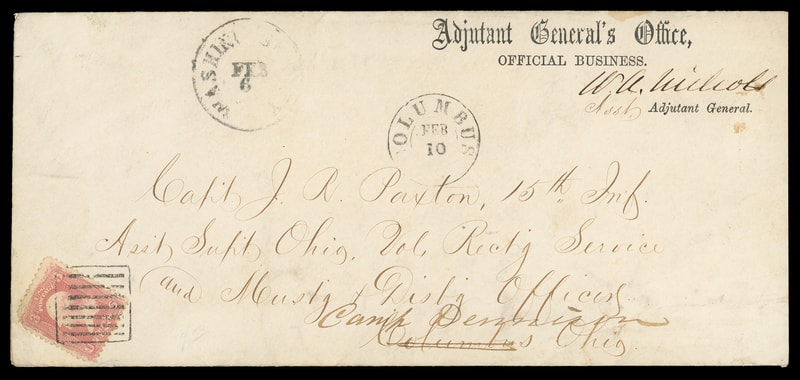 Adjutant General's Office,
OFFICIAL BUSINESS.
W. A. Nichols
Asst Adjutant General.
WASHIN
FEB
6
COLUMBUS
FEB
10
Capt J. R. Paxton, 15th Inf.
Asst Supt Ohio, Vol, Rectg Service
and Mustg & Disbg Officer.
Camp Dennison
Columbus Ohio.